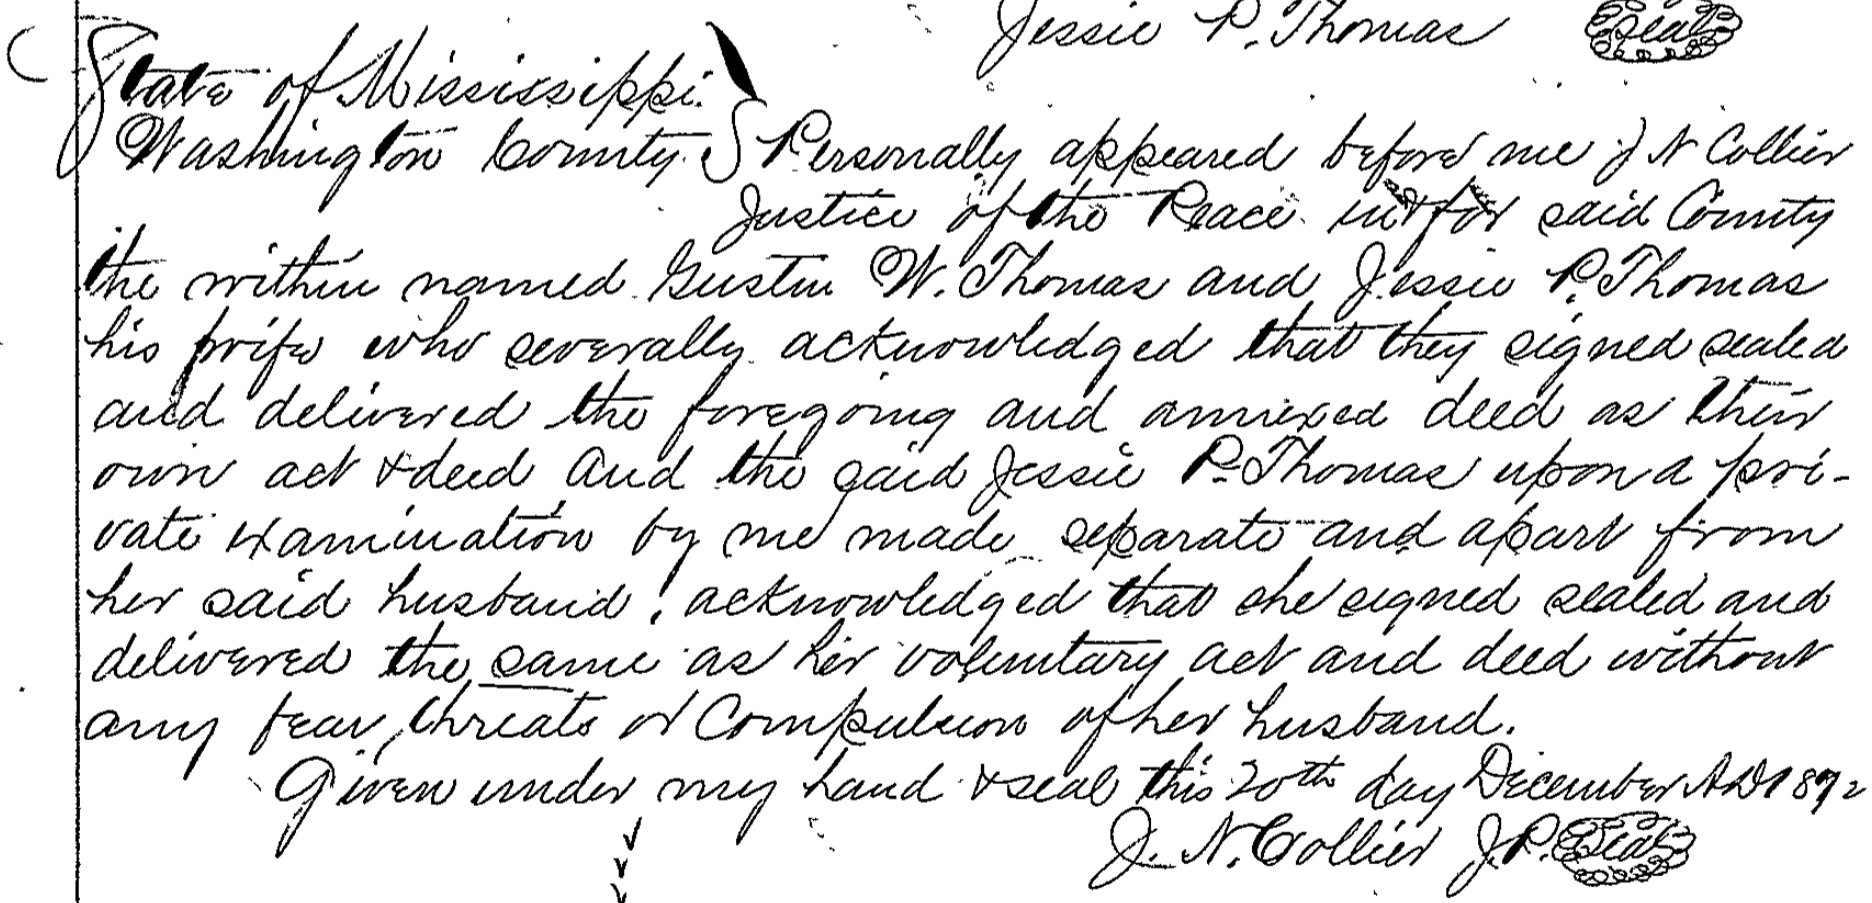 Jessie P. Thomas Seal
State of Mississippi.
Washington County. } Personally appeared before me J N Collier
Justice of the Peace in & for said County
the within named Gustin W. Thomas and Jessie P. Thomas
his wife who severally acknowledged that they signed sealed
and delivered the foregoing and annexed deed as their
own act & deed and the said Jessie P. Thomas upon a pri-
vate examination by me made separate and apart from
her said husband, acknowledged that she signed sealed and
delivered the same as her voluntary act and deed without
any fear, threats or Compulsion of her husband.
Given under my hand & seal this 20th day December A.D. 1872
J. N. Collier J.P. Seal